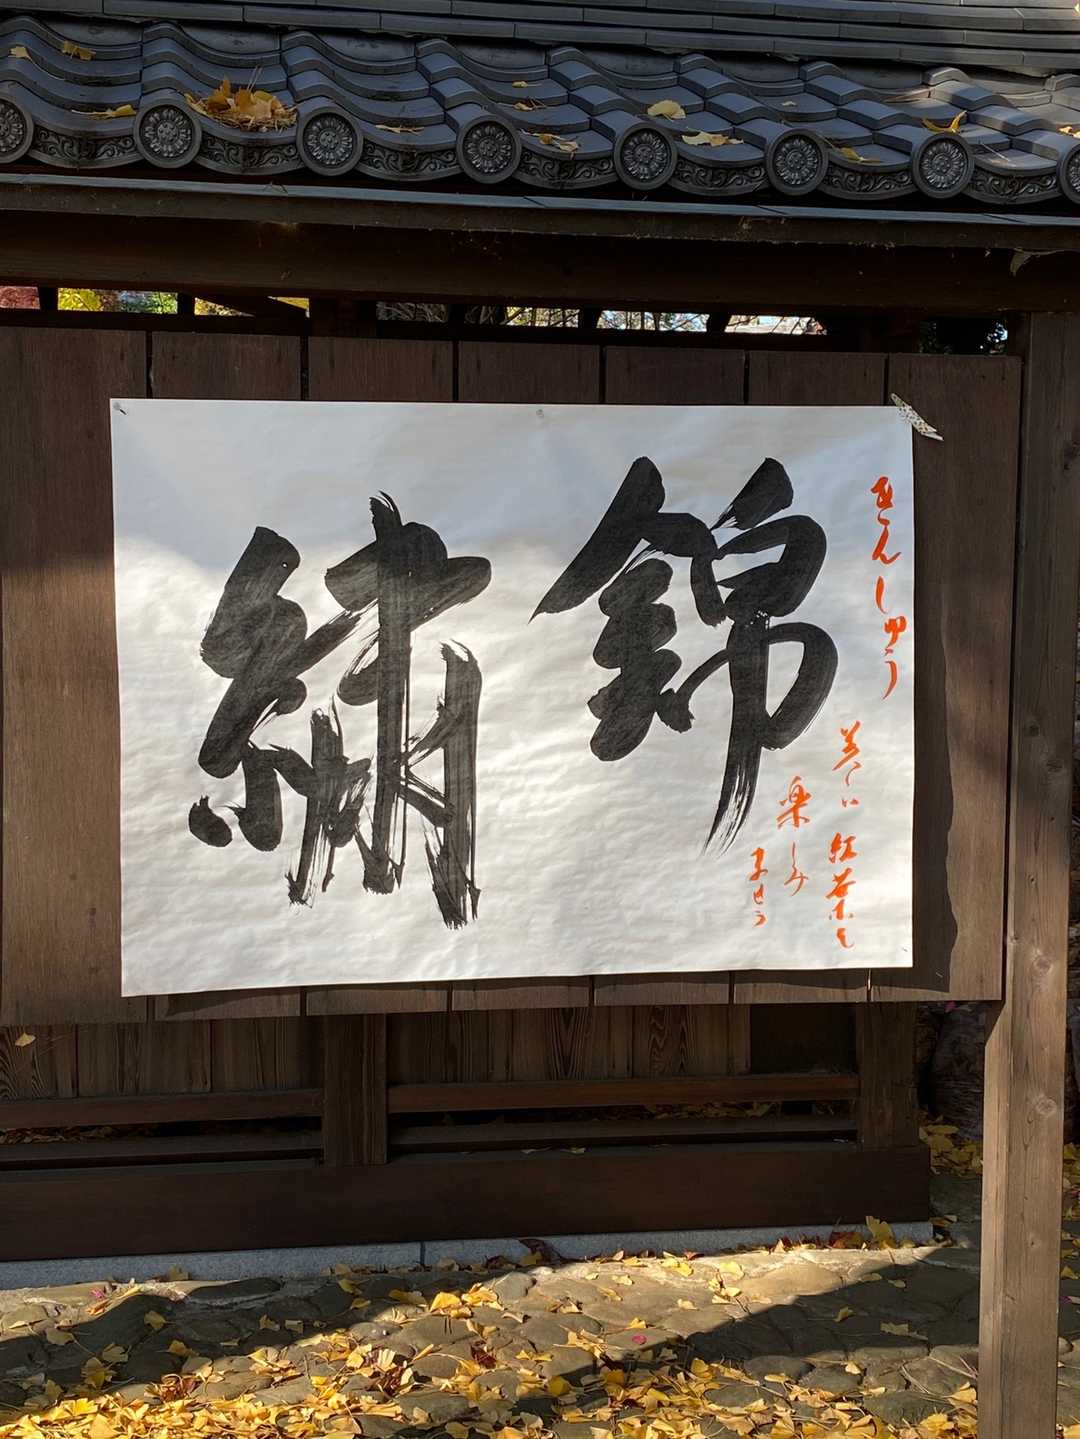 錦繡
きんしゅう
美しい紅葉を
楽しみ
ませう